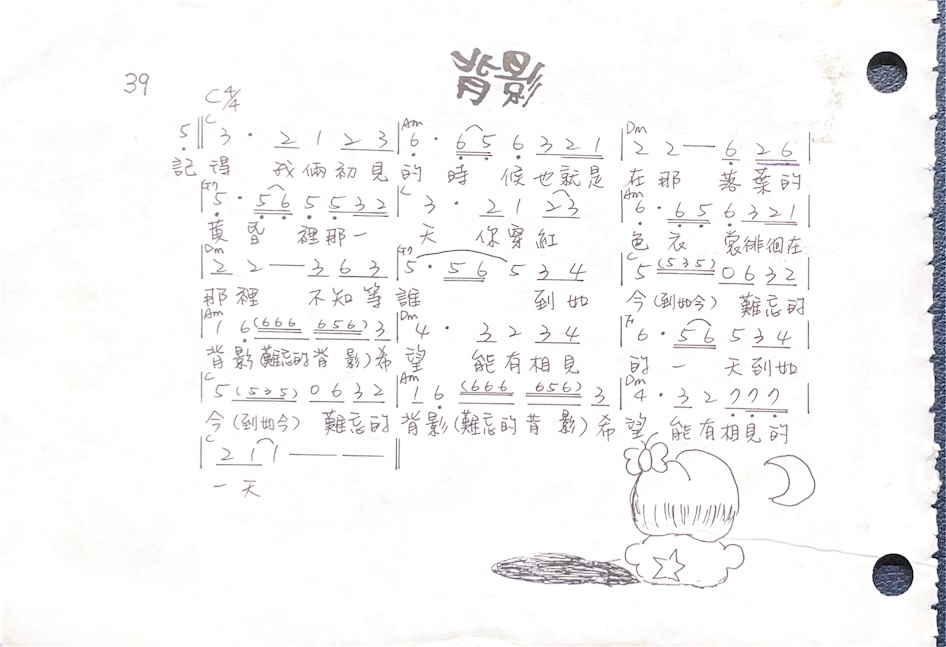 背影
39
C 4/4
C Am Dm
5 ‖ 3 · 2 1 2 3 | 6 · 6 5 6 3 2 1 | 2 2 — 6 2 6 |
記得 我倆初見的時候也就是在那落葉的
G7 C Am
| 5 · 5 6 5 5 3 2 | 3 · 2 1 2 3 | 6 · 6 5 6 3 2 1 |
黃昏裡那一天你穿紅色衣裳徘徊在
Dm G7 C
| 2 2 — 3 6 3 | 5 · 5 6 5 3 4 | 5 (5 3 5) 0 6 3 2 |
那裡不知等誰到如今(到如今)難忘的
Am Dm F
| 1 6 (6 6 6 6 5 6) 3 | 4 · 3 2 3 4 | 6 · 5 6 5 3 4 |
背影(難忘的背影)希望能有相見的一天到如
C Am Dm
| 5 (5 3 5) 0 6 3 2 | 1 6 (6 6 6 6 5 6) 3 | 4 · 3 2 7 7 7 |
今(到如今)難忘的背影(難忘的背影)希望能有相見的
C
| 2 1 1 — — ‖
一天